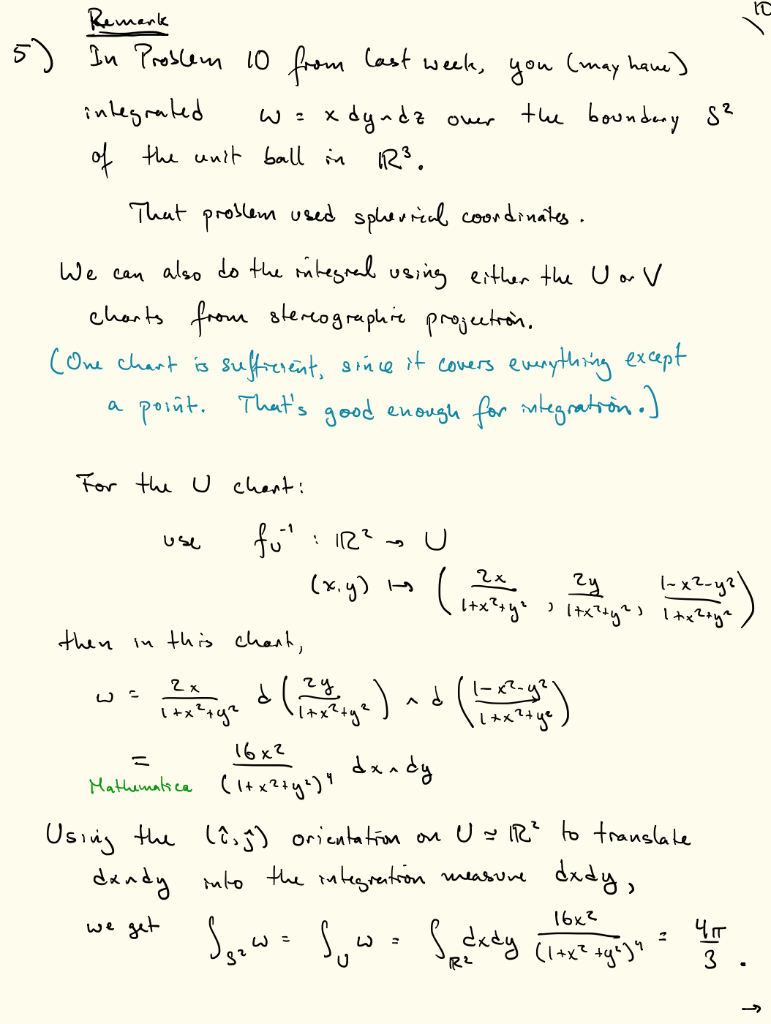 10
Remark
5) In Problem 10 from last week, you (may have)
integrated ω = x dy∧dz over the boundary S²
of the unit ball in ℝ³.
That problem used spherical coordinates.
We can also do the integral using either the U or V
charts from stereographic projection.
(One chart is sufficient, since it covers everything except
a point. That's good enough for integration.)
For the U chart:
use f_U⁻¹ : ℝ² → U
(x,y) ↦ ( 2x/(1+x²+y²) , 2y/(1+x²+y²) , (1-x²-y²)/(1+x²+y²) )
then in this chart,
ω = 2x/(1+x²+y²) d( 2y/(1+x²+y²) ) ∧ d( (1-x²-y²)/(1+x²+y²) )
= 16x²/(1+x²+y²)⁴ dx∧dy
Mathematica
Using the (î,ĵ) orientation on U ≃ ℝ² to translate
dx∧dy into the integration measure dxdy,
we get ∫_S² ω = ∫_U ω = ∫_ℝ² dxdy 16x²/(1+x²+y²)⁴ = 4π/3 .
→